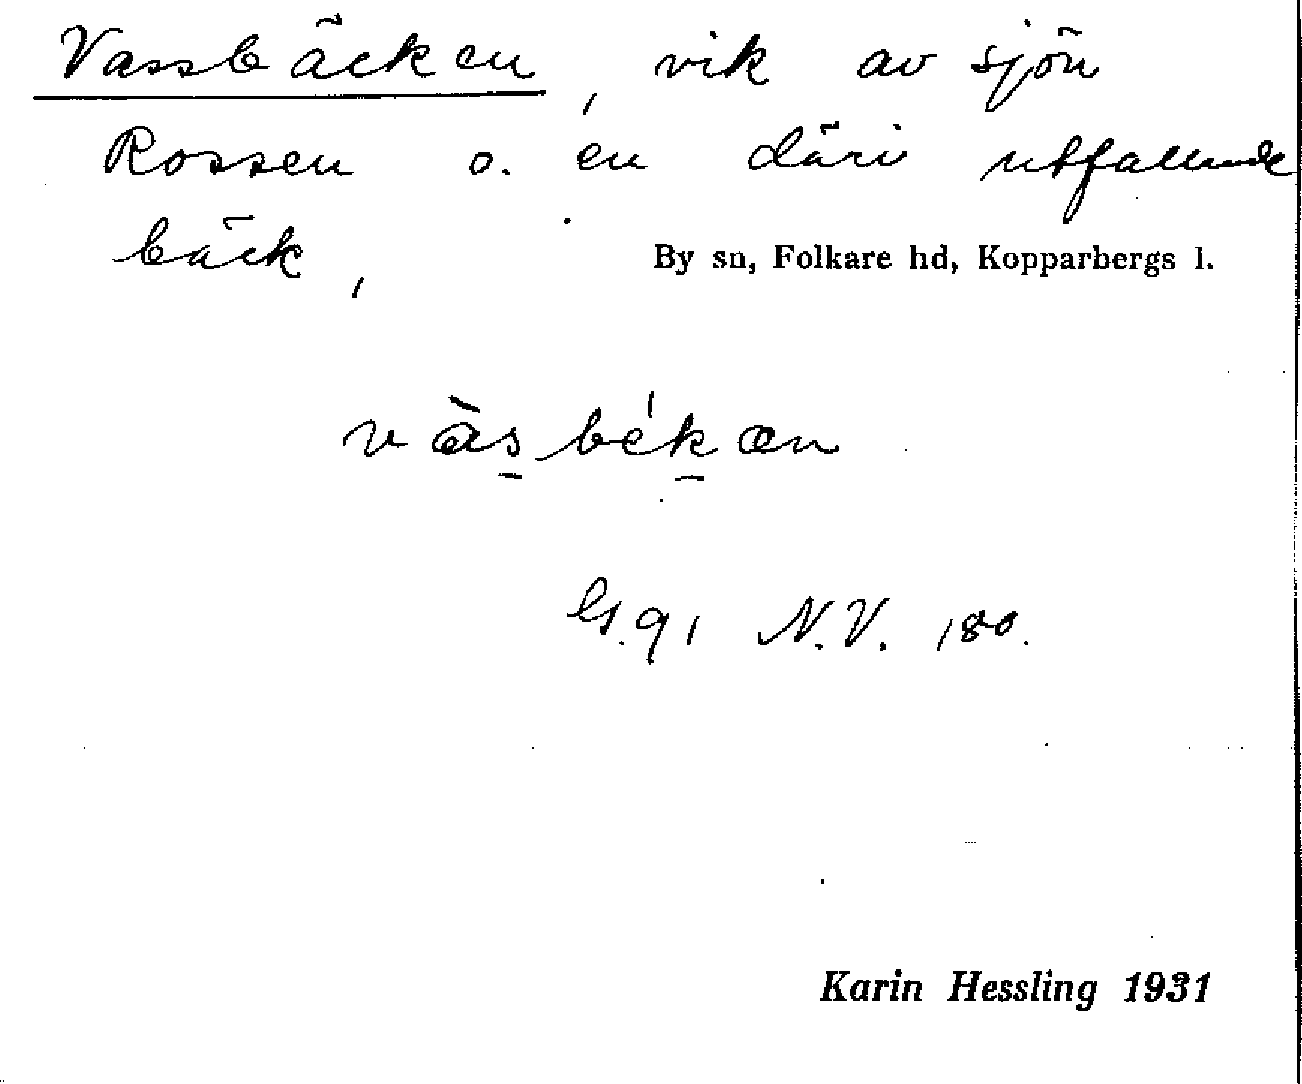 Vassbäcken, vik av sjön
Rossen o. en däri utfallande
bäck,
By sn, Folkare hd, Kopparbergs l.
vàsbékæn
Gs. 91 N.V. 180.
Karin Hessling 1931